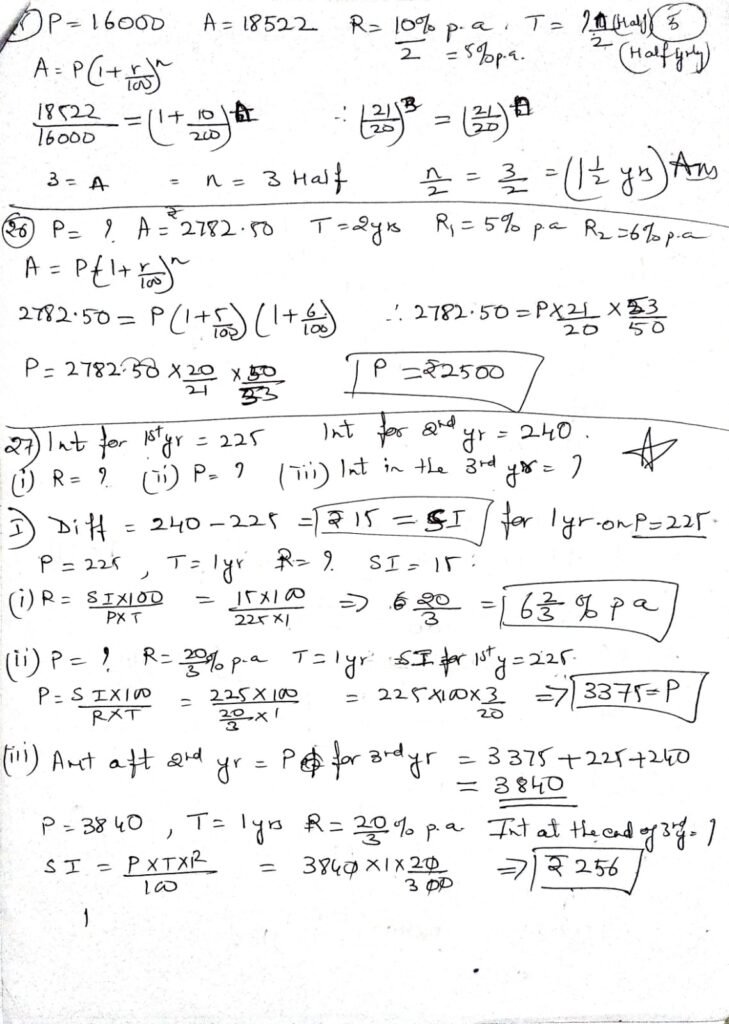 P = 16000 A = 18522 R = 10% p.a. T = ? n/2 (Half) 3
2 = 5% p.a. (Half yrly)
A = P(1 + r/100)^n
18522/16000 = (1 + 10/200) ∴ (21/20)^3 = (21/20)
3 = A = n = 3 Half n/2 = 3/2 = (1 1/2 yrs) Ans
26 P = ? A = ₹2782.50 T = 2yrs R₁ = 5% p.a R₂ = 6% p.a
A = P(1 + r/100)^n
2782.50 = P(1 + 5/100)(1 + 6/100) ∴ 2782.50 = P × 21/20 × 53/50
P = 2782.50 × 20/21 × 50/53 P = ₹2500
27) Int for 1st yr = 225 Int for 2nd yr = 240.
(i) R = ? (ii) P = ? (iii) Int in the 3rd yr = ?
I) Diff = 240 – 225 = ₹15 = SI for 1yr. on P = 225.
P = 225, T = 1yr R = ? SI = 15.
(i) R = SI×100/P×T = 15×100/225×1 => 20/3 = 6 2/3 % p a
(ii) P = ? R = 20/3% p.a T = 1yr SI for 1st y = 225.
P = SI×100/R×T = 225×100/20/3 ×1 = 225×100×3/20 => 3375 = P
(iii) Amt aft 2nd yr = P for 3rd yr = 3375 + 225 + 240
= 3840
P = 3840, T = 1yrs R = 20/3 % p.a Int at the end of 3rd y. = ?
SI = P×T×R/100 = 3840×1×20/300 => ₹256